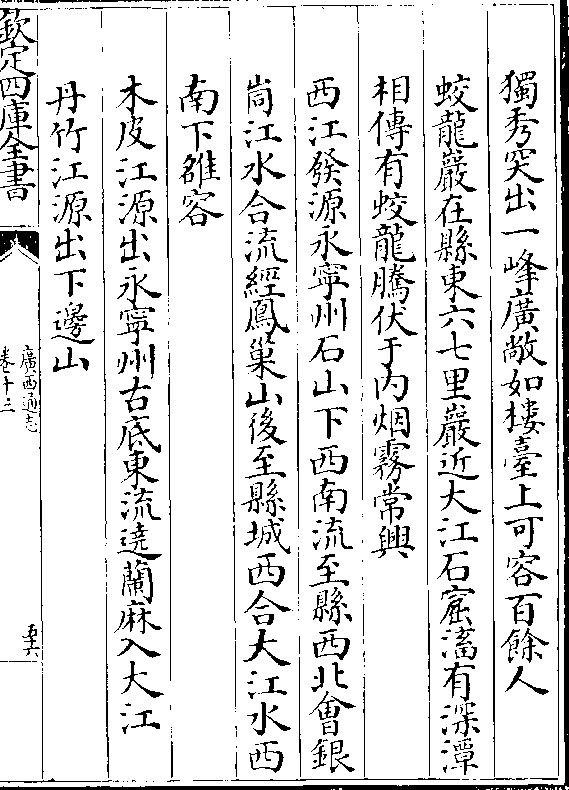 獨秀突出一峰廣敞如樓臺上可容百餘人
蛟龍巖在縣東六七里巖近大江石窟滀有深潭
相傳有蛟龍騰伏于内烟霧常興
西江發源永寧州石山下西南流至縣西北會銀
峝江水合流經鳳巢山後至縣城西合大江水西
南下雒容
木皮江源出永寧州古底東流遶蘭麻入大江
丹竹江源出下邊山
欽定四庫全書
廣西通志
卷十三